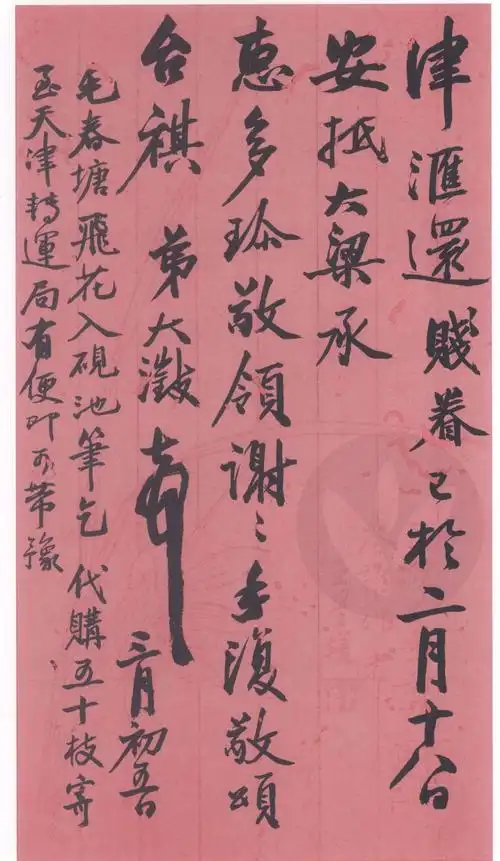 津滙還賤眷已於二月十八日
安抵大梁承
惠多珍敬領謝〻手復敬頌
台祺 弟大澂
三月初五日
毛春塘飛花入硯池筆乞 代購五十枝寄
至天津轉運局有便即可帶豫